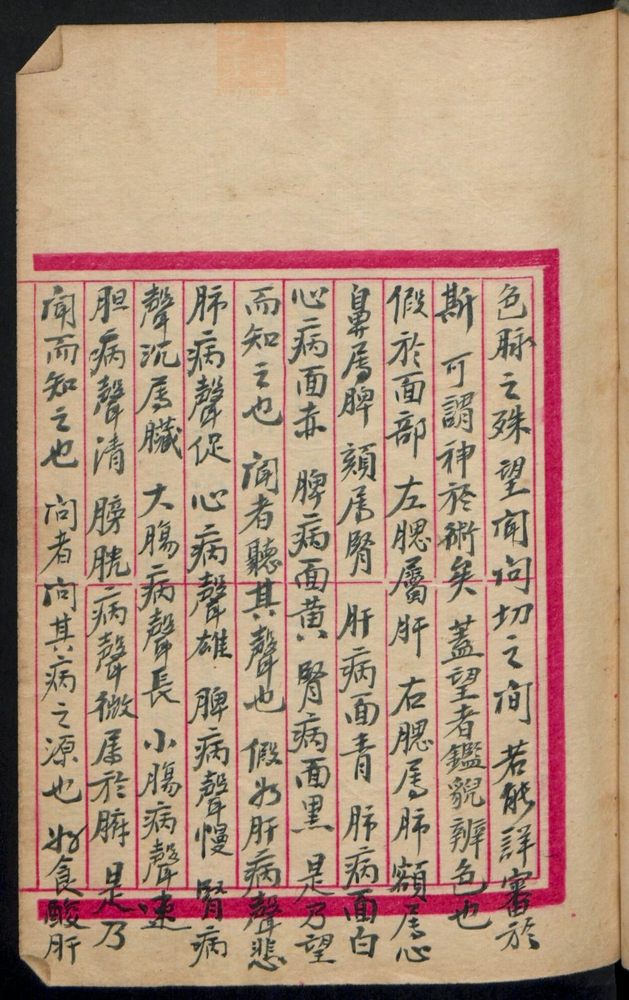 色脉之殊望闻问切之间若能詳審於
斯可謂神於術矣蓋望者鑑貎辨色也
假於面部左腮屬肝右腮属肺額属心
鼻属脾頦属腎肝病面青肺病面白
心病面赤脾病面黄腎病面黑是乃望
而知之也闻者聽其聲也假如肝病聲悲
肺病聲促心病聲雄脾病聲慢腎病
聲沉属臟大腸病聲長小腸病聲速
胆病聲清膀胱病聲微属於腑是乃
闻而知之也问者问其病之源也如食酸肝